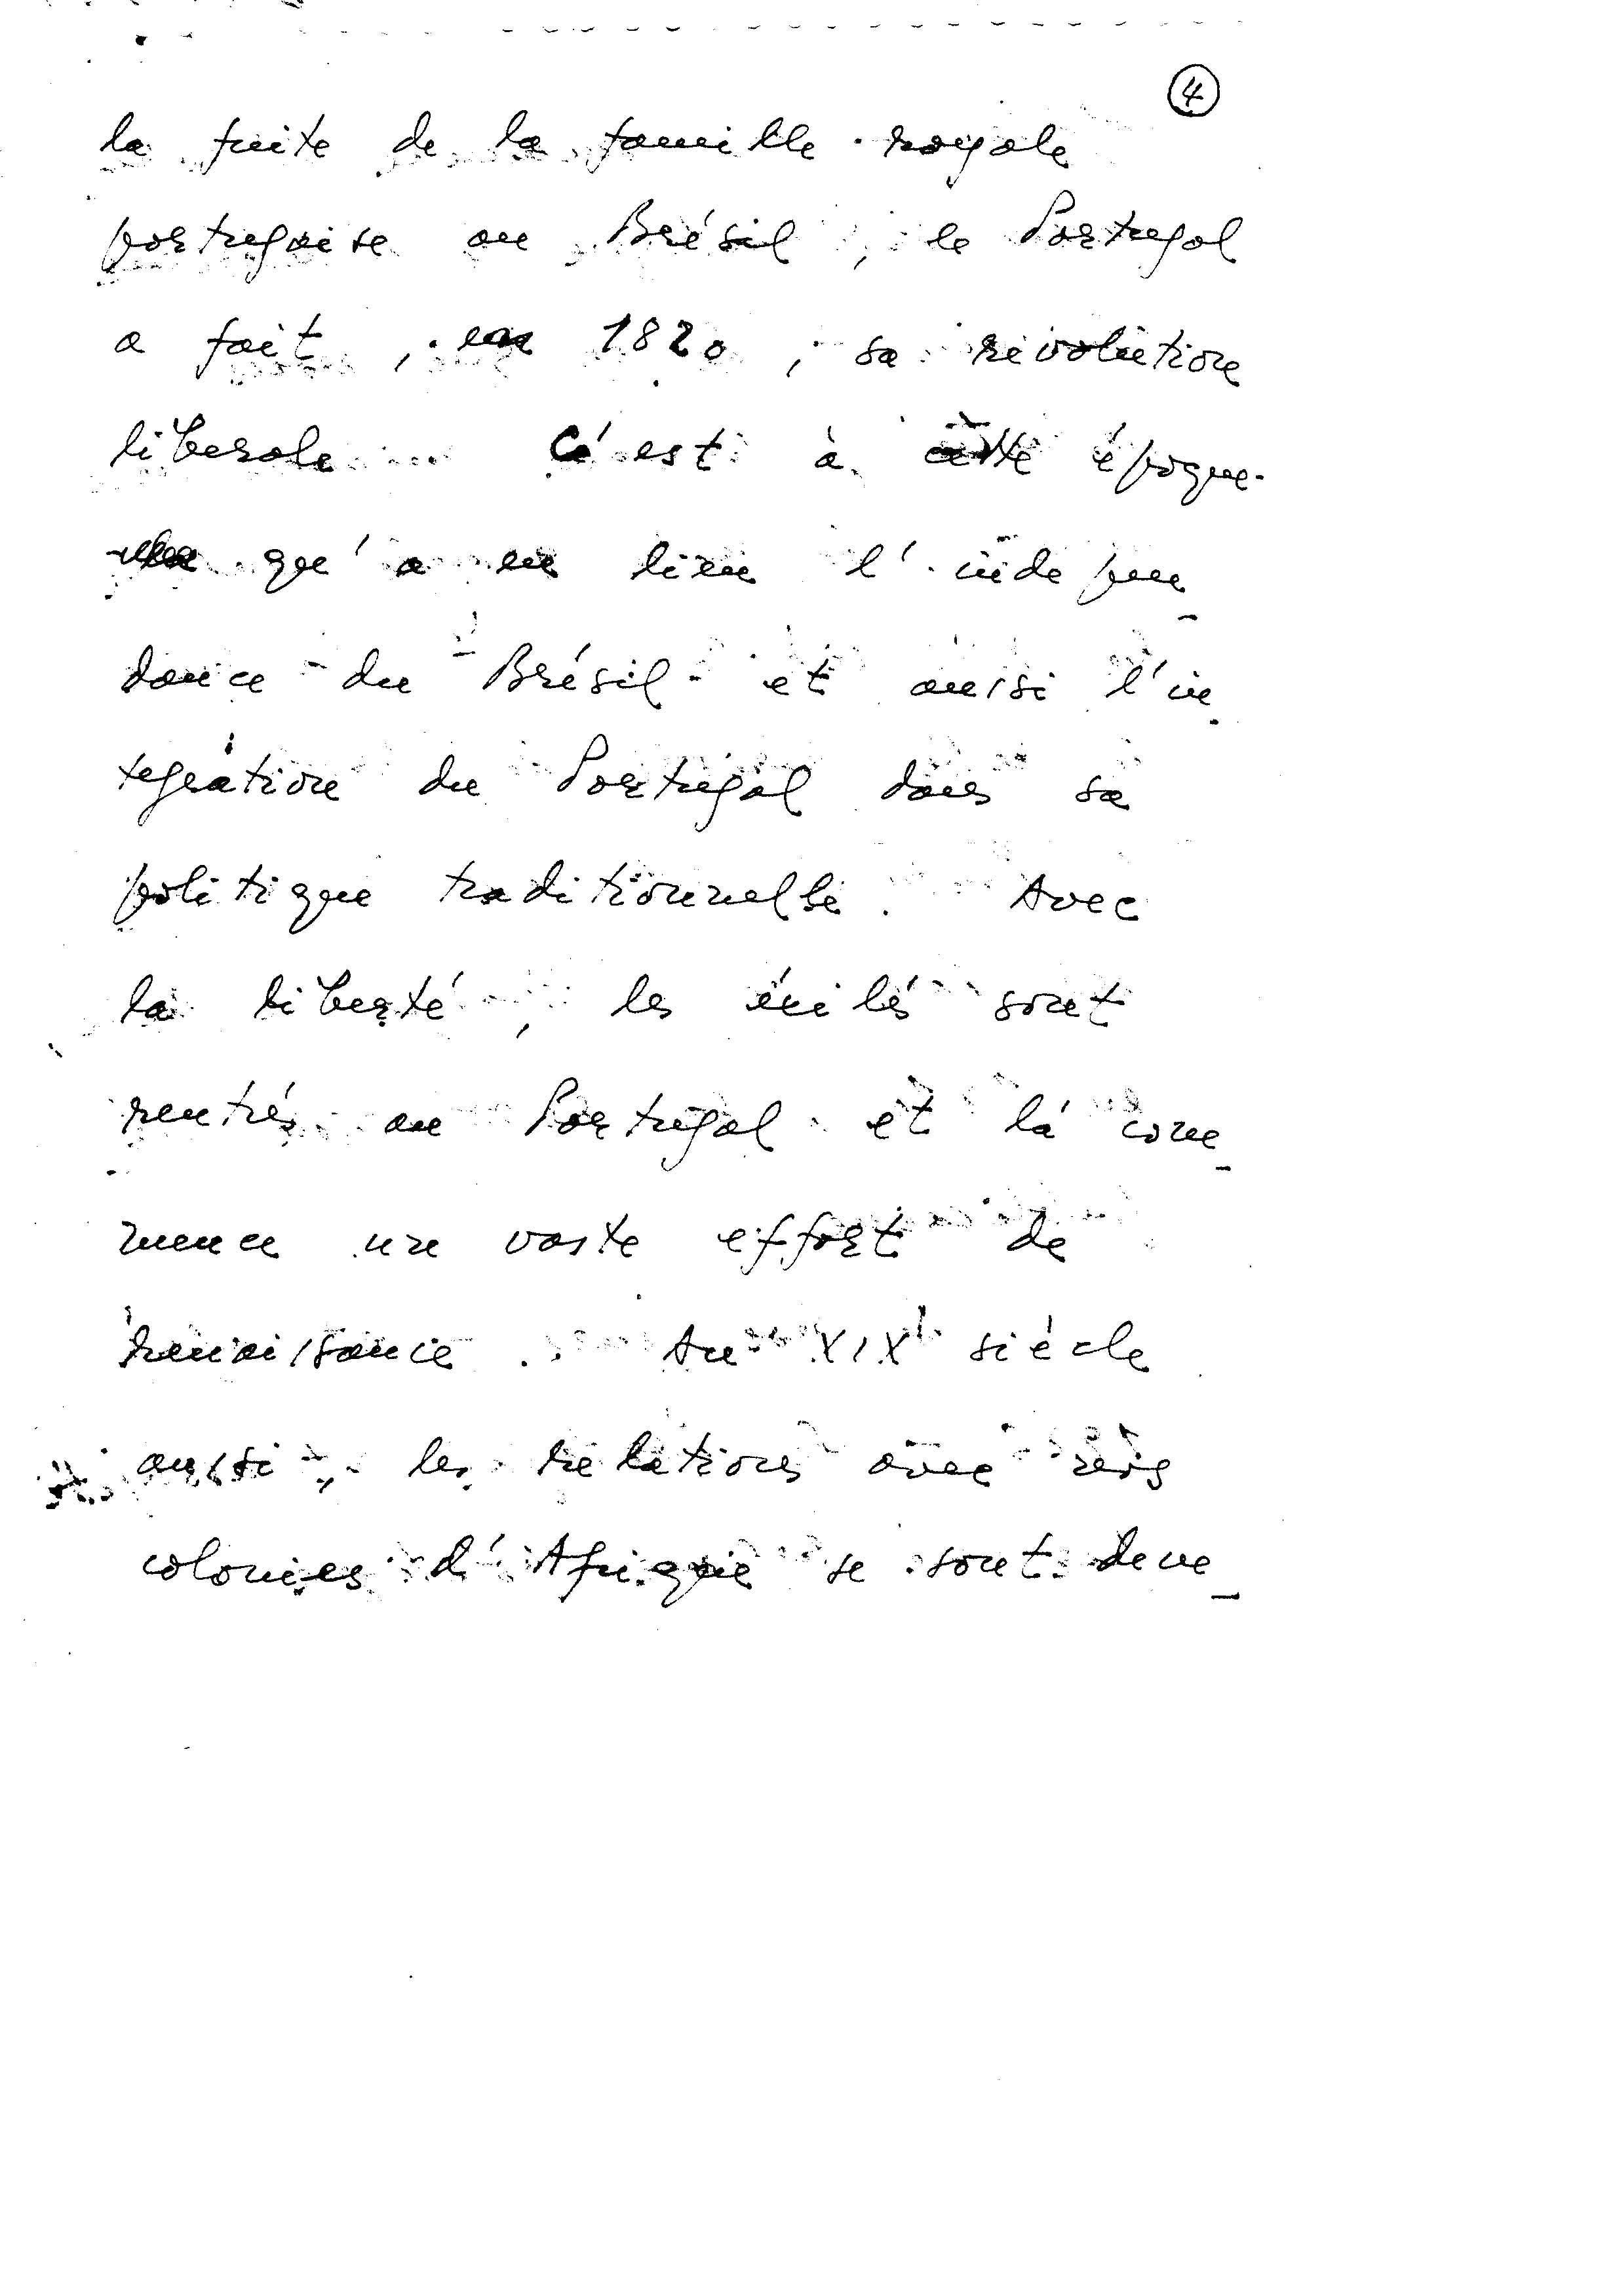 4
la fuite de la famille royale
portugaise au Brésil, le Portugal
a fait, en 1820, sa révolution
liberale C'est à cette époque-
qu'a eu lieu l'indepen_
dance du Brésil et aussi l'in_
tegration du Portugal dans sa
politique traditionnelle. Avec
la liberté, les éxilés sont
rentrés au Portugal et là com_
mence un vaste effort de
renaissance. Au XIX siècle
aussi, les relations avec nos
colonies d'Afrique se sont deve_